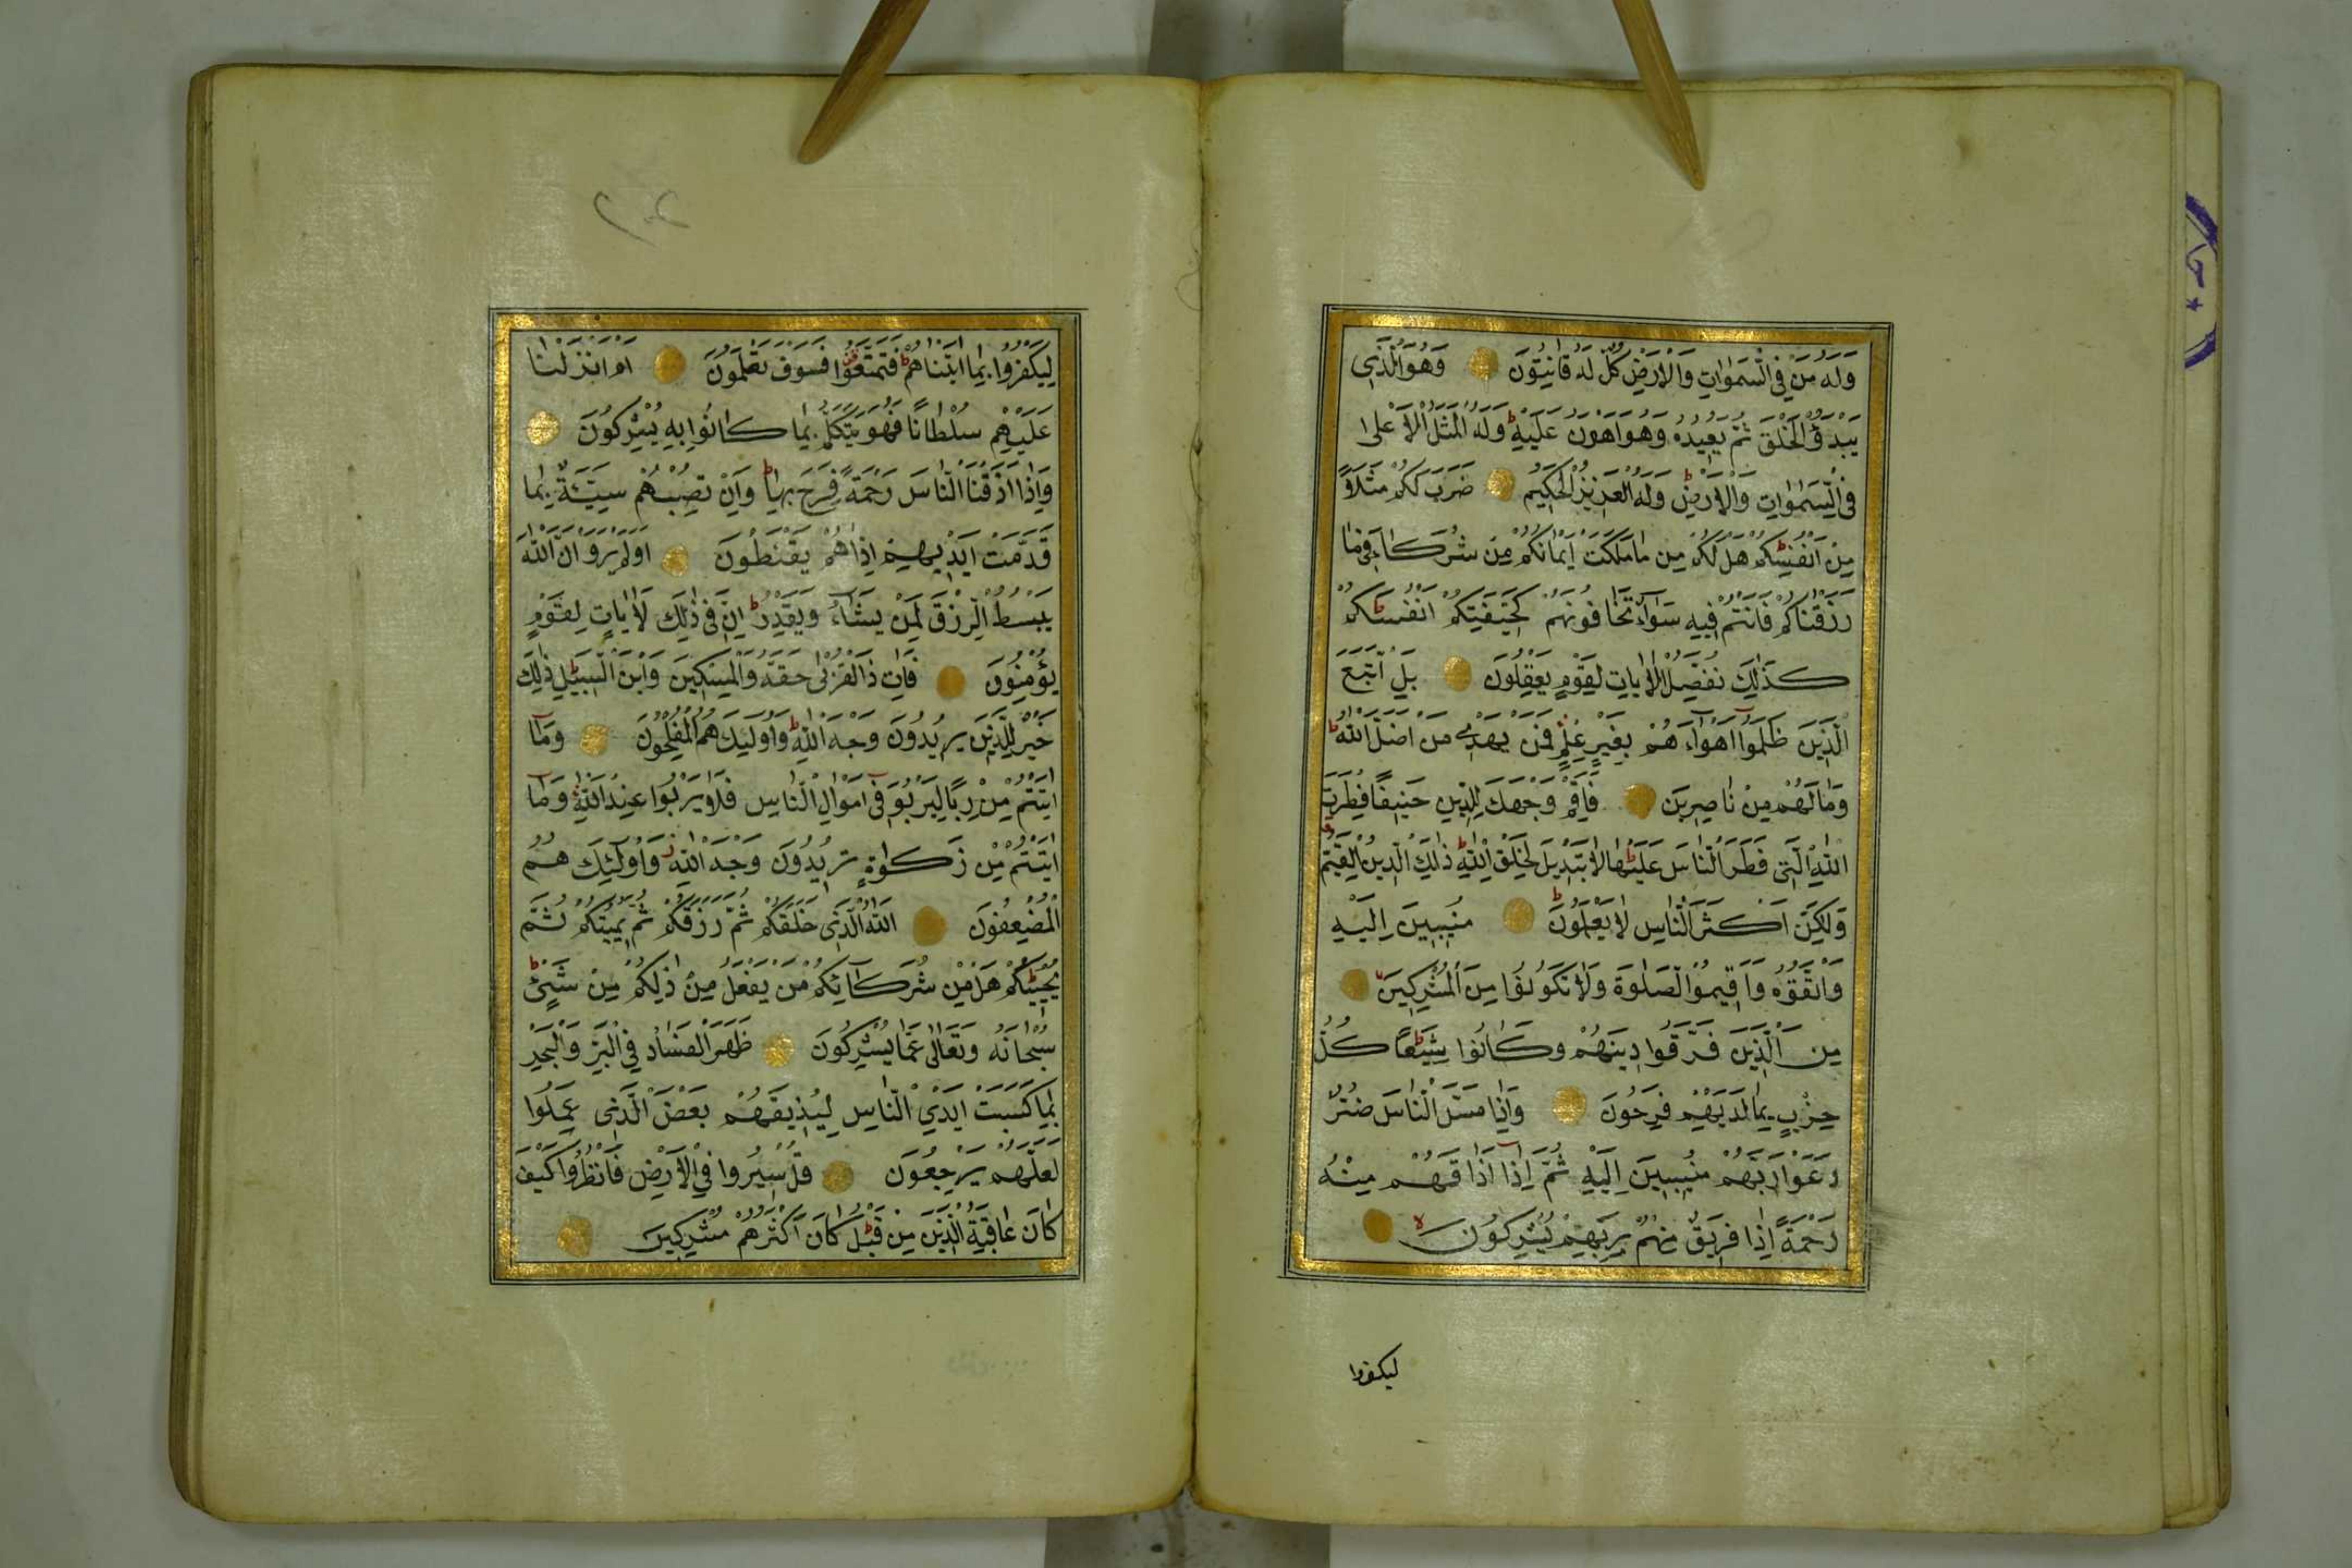 وَلَهُ مَنْ فِي السَّمَوَاتِ وَالْاَرْضِ كُلٌّ لَهُ قَانِتُونَ وَهُوَ الَّذِي
يَبْدَؤُ الْخَلْقَ ثُمَّ يُعِيدُهُ وَهُوَ اَهْوَنُ عَلَيْهِ وَلَهُ الْمَثَلُ الْاَعْلٰى
فِي السَّمٰوَاتِ وَالْاَرْضِ وَلَهُ الْعَزِيزُ الْحَكِيمُ ضَرَبَ لَكُمْ مَثَلًا
مِنْ اَنْفُسِكُمْ هَلْ لَكُمْ مِنْ مَا مَلَكَتْ اَيْمَانُكُمْ مِنْ شُرَكَاءَ فِي مَا
رَزَقْنَاكُمْ فَاَنْتُمْ فِيهِ سَوَاءٌ تَخَافُونَهُمْ كَخِيفَتِكُمْ اَنْفُسَكُمْ
كَذٰلِكَ نُفَصِّلُ الْاٰيَاتِ لِقَوْمٍ يَعْقِلُونَ بَلِ اتَّبَعَ
الَّذِينَ ظَلَمُوا اَهْوَاءَهُمْ بِغَيْرِ عِلْمٍ فَمَنْ يَهْدِي مَنْ اَضَلَّ اللّٰهُ
وَمَا لَهُمْ مِنْ نَاصِرِينَ فَاَقِمْ وَجْهَكَ لِلدِّينِ حَنِيفًا فِطْرَتَ
اللّٰهِ الَّتِي فَطَرَ النَّاسَ عَلَيْهَا لَا تَبْدِيلَ لِخَلْقِ اللّٰهِ ذٰلِكَ الدِّينُ الْقَيِّمُ
وَلٰكِنَّ اَكْثَرَ النَّاسِ لَا يَعْلَمُونَ مُنِيبِينَ اِلَيْهِ
وَاتَّقُوهُ وَاَقِيمُوا الصَّلٰوةَ وَلَا تَكُونُوا مِنَ الْمُشْرِكِينَ
مِنَ الَّذِينَ فَرَّقُوا دِينَهُمْ وَكَانُوا شِيَعًا كُلُّ
حِزْبٍ بِمَا لَدَيْهِمْ فَرِحُونَ وَاِذَا مَسَّ النَّاسَ ضُرٌّ
دَعَوْا رَبَّهُمْ مُنِيبِينَ اِلَيْهِ ثُمَّ اِذَا اَذَاقَهُمْ مِنْهُ
رَحْمَةً اِذَا فَرِيقٌ مِنْهُمْ بِرَبِّهِمْ يُشْرِكُونَ
ليكفروا
٢٠٢
لِيَكْفُرُوا بِمَا اٰتَيْنَاهُمْ فَتَمَتَّعُوا فَسَوْفَ تَعْلَمُونَ اَمْ اَنْزَلْنَا
عَلَيْهِمْ سُلْطَانًا فَهُوَ يَتَكَلَّمُ بِمَا كَانُوا بِهِ يُشْرِكُونَ
وَاِذَا اَذَقْنَا النَّاسَ رَحْمَةً فَرِحَ بِهَا وَاِنْ تُصِبْهُمْ سَيِّئَةٌ بِمَا
قَدَّمَتْ اَيْدِيهِمْ اِذَا هُمْ يَقْنَطُونَ اَوَلَمْ يَرَوْا اَنَّ اللّٰهَ
يَبْسُطُ الرِّزْقَ لِمَنْ يَشَاءُ وَيَقْدِرُ اِنَّ فِي ذٰلِكَ لَاٰيَاتٍ لِقَوْمٍ
يُؤْمِنُونَ فَاٰتِ ذَا الْقُرْبٰى حَقَّهُ وَالْمِسْكِينَ وَابْنَ السَّبِيلِ ذٰلِكَ
خَيْرٌ لِلَّذِينَ يُرِيدُونَ وَجْهَ اللّٰهِ وَاُولٰئِكَ هُمُ الْمُفْلِحُونَ وَمَا
اٰتَيْتُمْ مِنْ رِبًا لِيَرْبُوَ فِي اَمْوَالِ النَّاسِ فَلَا يَرْبُوا عِنْدَ اللّٰهِ وَمَا
اٰتَيْتُمْ مِنْ زَكٰوةٍ تُرِيدُونَ وَجْهَ اللّٰهِ وَاُولٰئِكَ هُمُ
الْمُضْعِفُونَ اَللّٰهُ الَّذِي خَلَقَكُمْ ثُمَّ رَزَقَكُمْ ثُمَّ يُمِيتُكُمْ ثُمَّ
يُحْيِيكُمْ هَلْ مِنْ شُرَكَائِكُمْ مَنْ يَفْعَلُ مِنْ ذٰلِكُمْ مِنْ شَيْئٍ
سُبْحَانَهُ وَتَعَالٰى عَمَّا يُشْرِكُونَ ظَهَرَ الْفَسَادُ فِي الْبَرِّ وَالْبَحْرِ
بِمَا كَسَبَتْ اَيْدِي النَّاسِ لِيُذِيقَهُمْ بَعْضَ الَّذِي عَمِلُوا
لَعَلَّهُمْ يَرْجِعُونَ قُلْ سِيرُوا فِي الْاَرْضِ فَانْظُرُوا كَيْفَ
كَانَ عَاقِبَةُ الَّذِينَ مِنْ قَبْلُ كَانَ اَكْثَرُهُمْ مُشْرِكِينَ